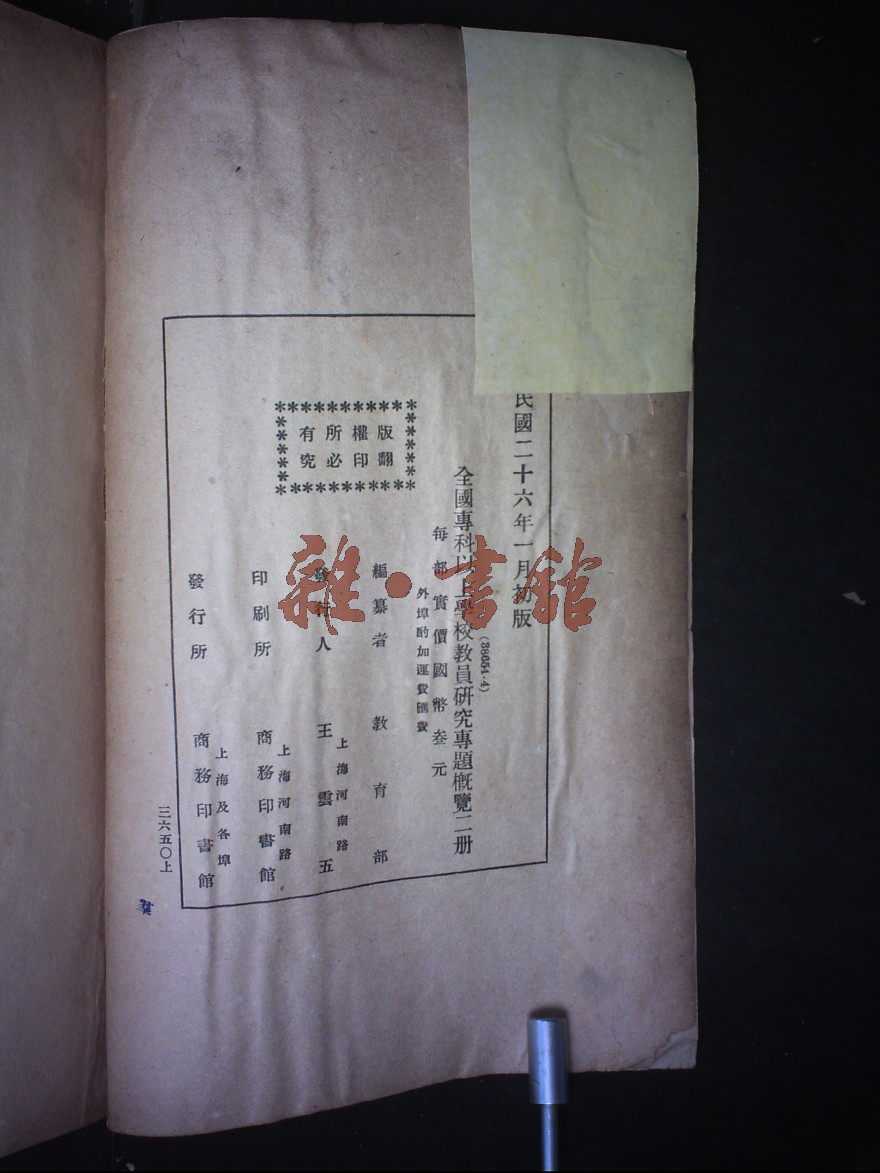 民國二十六年一月初版
(38654·4)
全國專科以上學校教員研究專題概覽二册
每部實價國幣叁元
外埠酌加運費匯費
版權所有
翻印必究
編纂者 教育部
上海河南路
發行人 王雲五
上海河南路
印刷所 商務印書館
上海及各埠
發行所 商務印書館
三六五〇上
雜·書館